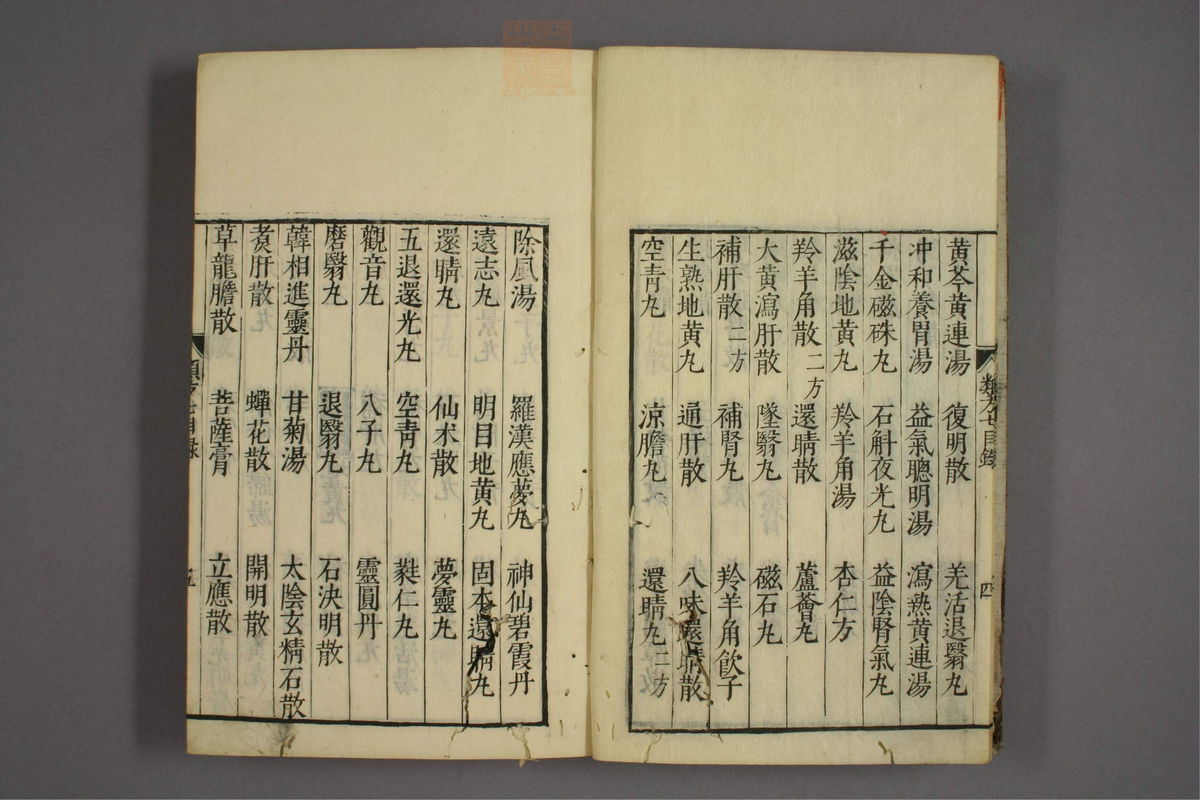 黄芩黄連湯 復明散 羌活退翳丸
冲和養胃湯 益氣聰明湯 瀉熱黄連湯
千金磁硃丸 石斛夜光丸 益陰腎氣丸
滋陰地黄丸 羚羊角湯 杏仁方
羚羊角散二方 還睛散 蘆薈丸
大黄瀉肝散 墜翳丸 磁石丸
補肝散二方 補腎丸 羚羊角飲子
生熟地黄丸 通肝散 八味還睛散
空青丸 涼膽丸 還睛丸二方
目錄 四
除風湯 羅漢應夢丸 神仙碧霞丹
遠志丸 明目地黄丸 固本還睛丸
還睛丸 仙术散 夢靈丸
五退還光丸 空青丸 蕤仁丸
觀音丸 八子丸 靈圓丹
磨翳丸 退翳丸 石決明散
韓相進靈丹 甘菊湯 太陰玄精石散
煑肝散 蟬花散 開明散
草龍膽散 菩薩膏 立應散
目錄 五